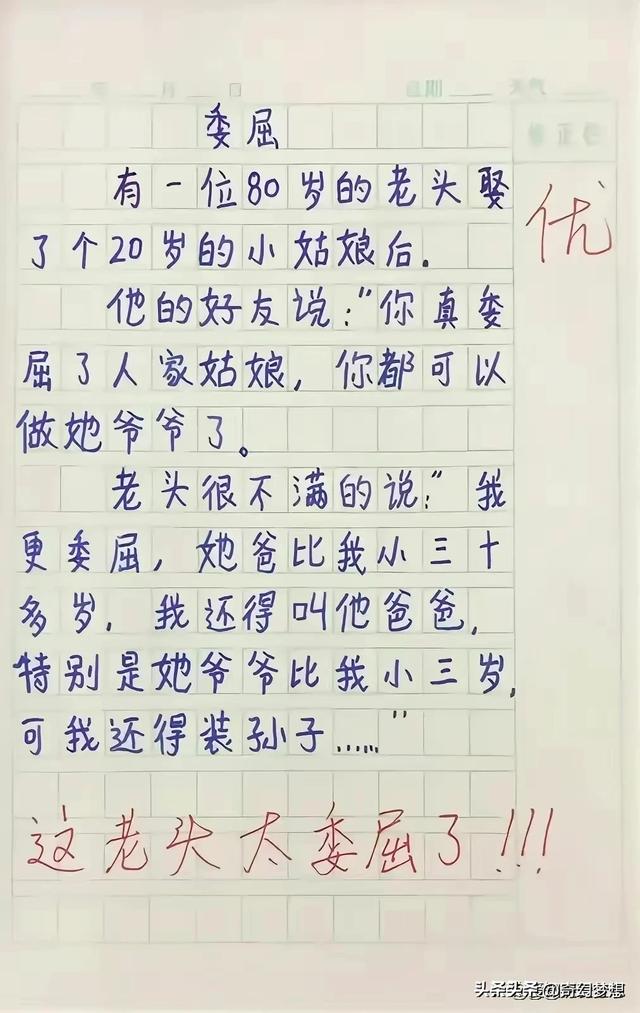 年 月 日 星期 天气
修正栏
委屈
有一位80岁的老头娶
了个20岁的小姑娘后.
他的好友说:"你真委
屈了人家姑娘,你都可以
做她爷爷了。
老头很不满的说:"我
更委屈,她爸比我小三十
多岁.我还得叫他爸爸,
特别是她爷爷比我小三岁,
可我还得装孙子……"
优
这老头太委屈了!!!
头条@奇幻梦想